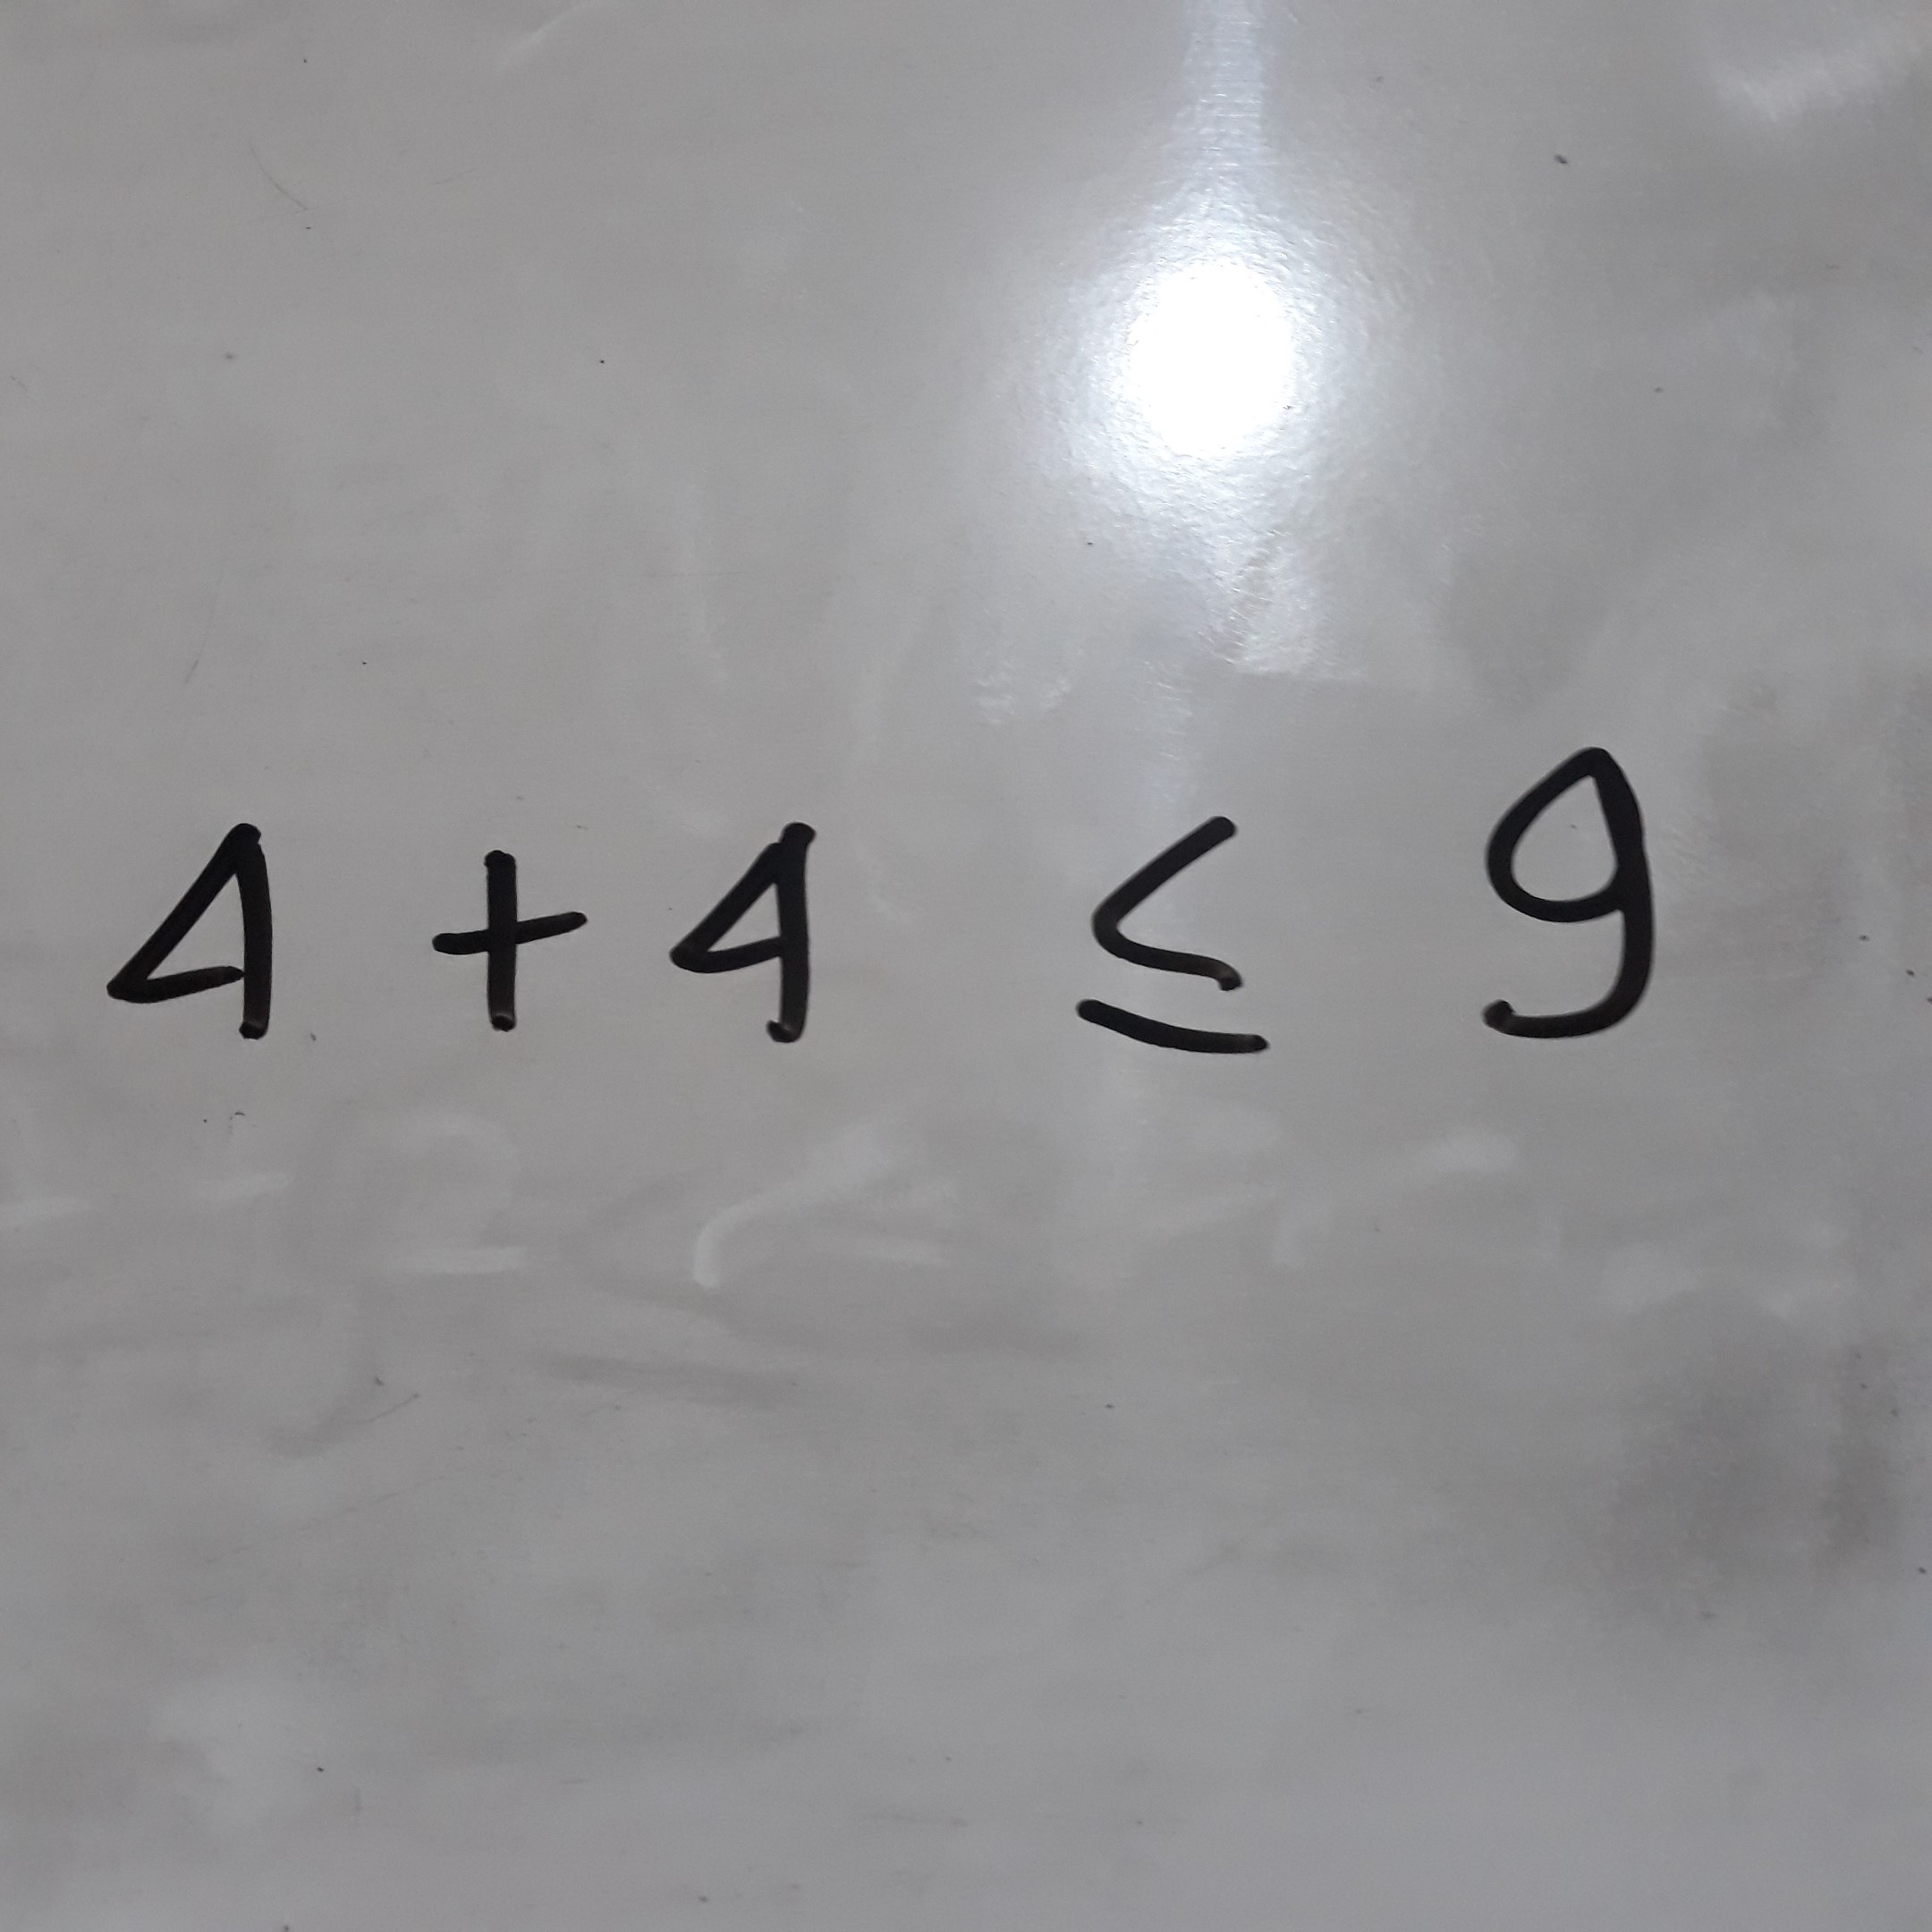 4 + 4 ≤ 9